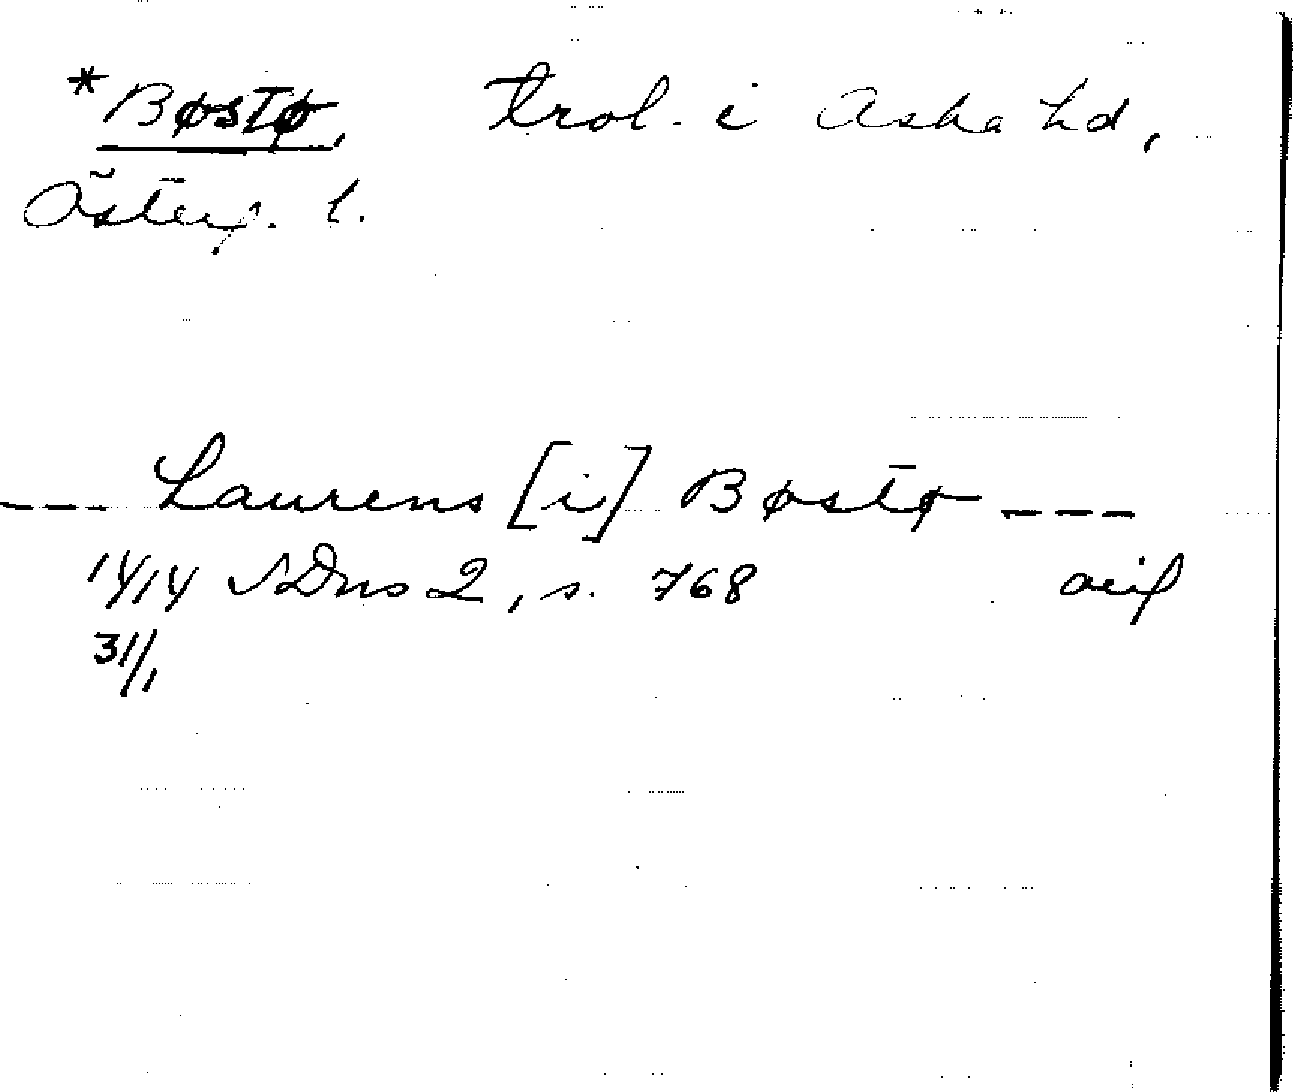 *Bøstø, trol. i Aska hd,
Österg. l.
--- Laurens [i] Bøstø ---
14/14 SDns 2, s. 768 avif
31/1